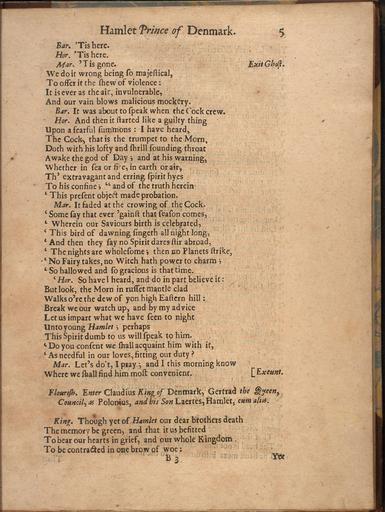 Hamlet Prince of Denmark. 5
Bar. 'Tis here.
Hor. 'Tis here.
Mar. 'Tis gone. Exit Ghost.
We do it wrong being so majestical,
To offer it the shew of violence:
It is ever as the air, invulnerable,
And our vain blows malicious mockery.
Bar. It was about to speak when the Cock crew.
Hor. And then it started like a guilty thing
Upon a fearful summons: I have heard,
The Cock, that is the trumpet to the Morn,
Doth with his lofty and shrill sounding throat
Awake the god of Day; and at his warning,
Whether in sea or fire, in earth or air,
Th' extravagant and erring spirit hyes
To his confine; “and of the truth herein
‘ This present object made probation.
Mar. It faded at the crowing of the Cock.
‘ Some say that ever 'gainst that season comes,
‘ Wherein our Saviours birth is celebrated,
‘ This bird of dawning singeth all night long,
‘ And then they say no Spirit dares stir abroad,
‘ The nights are wholsome; then no Planets strike,
‘ No Fairy takes, no Witch hath power to charm;
‘ So hallowed and so gracious is that time.
‘ Hor. So have I heard, and do in part believe it:
But look, the Morn in russet mantle clad
Walks o're the dew of yon high Eastern hill:
Break we our watch up, and by my advice
Let us impart what we have seen to night
Unto young Hamlet; perhaps
This Spirit dumb to us will speak to him.
‘ Do you consent we shall acquaint him with it,
‘ As needful in our loves, fitting our duty?
Mar. Let's do't, I pray; and I this morning know
Where we shall find him most convenient. [Exeunt.
Flourish. Enter Claudius King of Denmark, Gertrad the Queen,
Council, as Polonius, and his Son Laertes, Hamlet, cum aliis.
King. Though yet of Hamlet our dear brothers death
The memory be green, and that it us befitted
To bear our hearts in grief, and our whole Kingdom
To be contracted in one brow of woe:
B 3 Yet